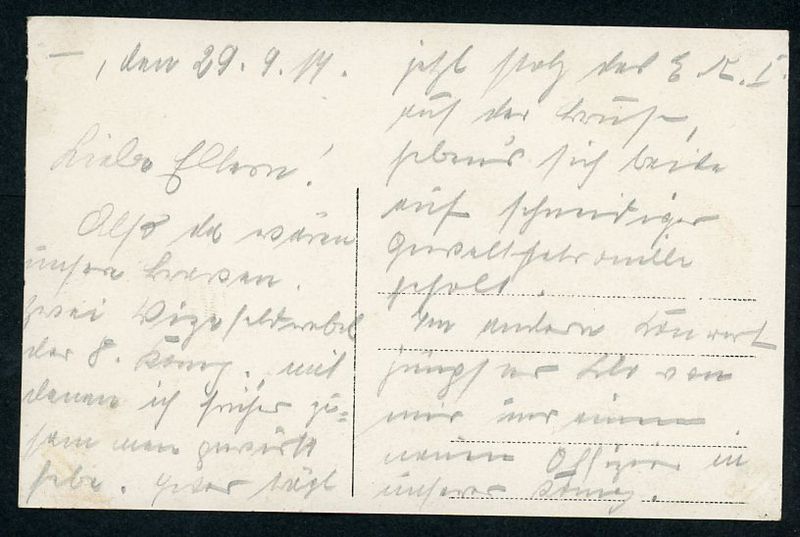 —, den 29.9.17.
Liebe Eltern!
Also da wären
unsere Braven.
Zwei Vizefeldwebel
der 8. Komp. mit
denen ich früher zu-
sammen gewirkt
habe. Jeder trägt
jetzt stolz das E.K.I.
auf der Brust,
haben's sich beide
auf schneidiger
Gewaltpatrouille
geholt.
Im andern Kouvert
von
mir nur einen
neuen Offizier in
unserer Komp.